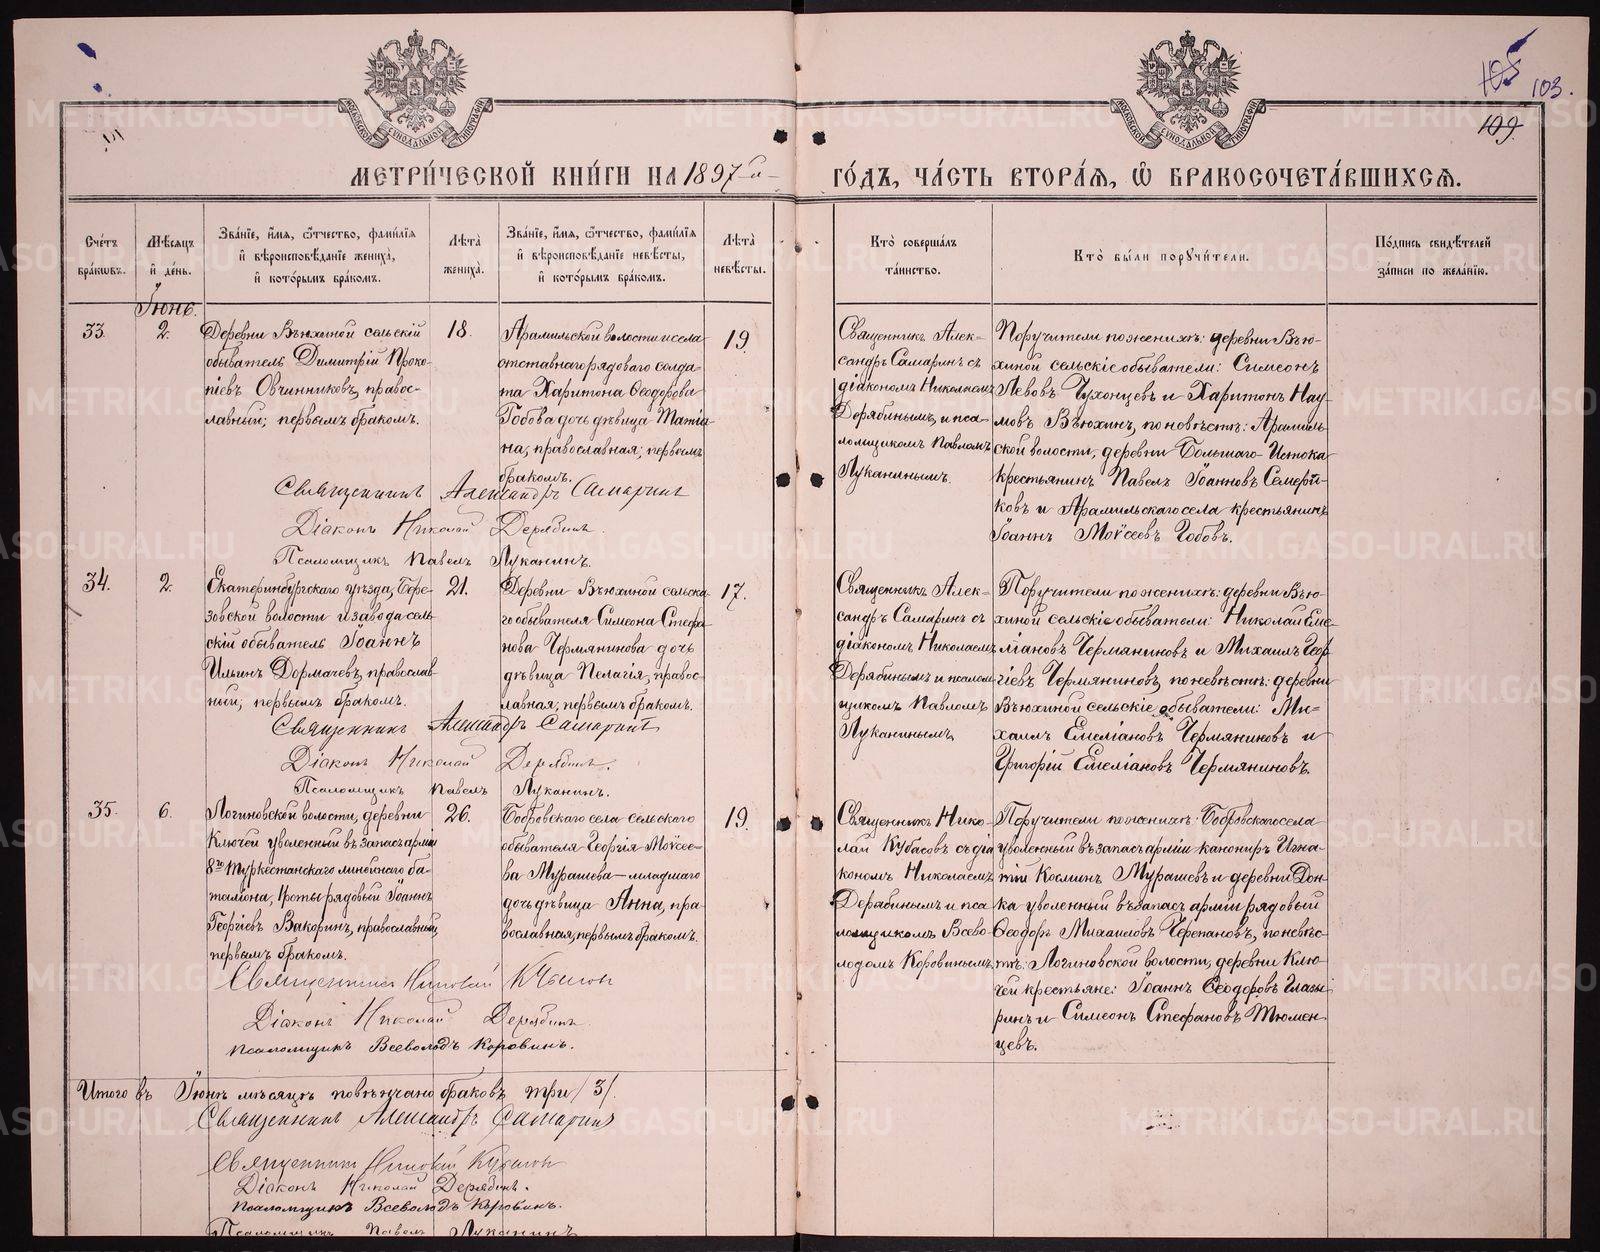 105
103.
109.
МЕТРИ́ЧЕСКОЙ КНИ́ГИ НА 1897-й
ГО́ДЪ, ЧА́СТЬ ВТОРА́Ѧ, Ѡ҆ БРАКОСОЧЕТА́ВШИХСѦ.
Сче́тъ бра́ковъ.
Мѣ́сяцъ и҆ де́нь.
Зва́нїе, и҆́мѧ, ѻ҆́тчество, фами́лїѧ и҆ вѣроисповѣ́данїе жениха̀, и҆ кото́рымъ бра́комъ.
Лѣта̀ жениха̀.
Зва́нїе, и҆́мѧ, ѻ҆́тчество, фами́лїѧ и҆ вѣроисповѣ́данїе невѣ́сты, и҆ кото́рымъ бра́комъ.
Лѣта̀ невѣ́сты.
Кто̀ соверша́лъ та́инство.
Кто̀ бы́ли порꙋчи́тели.
По́дпись свидѣ́телей за́писи по жела́нїю.
Іюнь.
33.
2.
Деревни Вьюхиной сельскій
обыватель Димитрій Проко-
піевъ Овчинниковъ, правос-
лавный; первымъ бракомъ.
18.
Арамильской волости и села
отставнаго рядоваго солда-
та Харитона Ѳеодорова
Гобова дочь дѣвица Татіа-
на, православная; первымъ
бракомъ.
19.
Священникъ Алек-
сандръ Самаринъ съ
діакономъ Николаемъ
Дерябинымъ и пса-
ломщикомъ Павломъ
Луканинымъ.
Поручители по женихѣ: деревни Вью-
хиной сельскіе обыватели: Симеонъ
Левовъ Чухонцевъ и Харитонъ Нау-
мовъ Вьюхинъ, по невѣстѣ: Арамиль-
ской волости, деревни Большаго Истока
крестьянинъ Павелъ Іоанновъ
и Арамильскаго села крестьянинъ
Іоаннъ Моѵсеевъ Гобовъ.
Священникъ Александръ Самаринъ
Діаконъ Николай Дерябинъ.
Псаломщикъ Павелъ Луканинъ.
34.
2.
Екатеринбургскаго уѣзда, Бере-
зовской волости и завода сель-
скій обыватель Іоаннъ
Ильинъ Дормачевъ, православ-
ный; первымъ бракомъ.
21.
Деревни Вьюхиной сельска-
го обывателя Симеона Стефа-
нова Чермянинова дочь
дѣвица Пелагія, правос-
лавная; первымъ бракомъ.
17.
Священникъ Алек-
сандръ Самаринъ съ
діакономъ Николаемъ
Дерябинымъ и псалом-
щикомъ Павломъ
Луканинымъ.
Поручители по женихѣ: деревни Вью-
хиной сельскіе обыватели: Николай Еме-
ліановъ Чермяниновъ и Михаилъ Геор-
гіевъ Чермяниновъ, по невѣстѣ: деревни
Вьюхиной сельскіе обыватели: Ми-
хаилъ Емеліановъ Чермяниновъ и
Григорій Емеліановъ Чермяниновъ.
Священникъ Александръ Самаринъ
Діаконъ Николай Дерябинъ.
Псаломщикъ Павелъ Луканинъ.
35.
6.
Логиновской волости, деревни
Ключей уволенный въ запасъ арміи
8го Туркестанскаго линейнаго ба-
таліона, роты рядовый Іоаннъ
Георгіевъ Вакоринъ, православный,
первымъ бракомъ.
26.
Бобровскаго села сельскаго
обывателя Георгія Моѵсее-
ва Мурашева – младшаго
дочь дѣвица Анна, пра-
вославная, первымъ бракомъ.
19.
Священникъ Нико-
лай Кубасовъ съ діа-
кономъ Николаемъ
Дерябинымъ и пса-
ломщикомъ Всево-
лодомъ Коровинымъ
Поручители по женихѣ: Бобровскаго села
уволенный въ запасъ арміи канониръ Игна-
тій Космин Мурашевъ и деревни Дон-
ка уволенный въ запасъ арміи рядовый
Ѳеодоръ Михаиловъ Черепановъ, по невѣс-
тѣ: Логиновской волости, деревни Клю-
чей крестьяне: Іоаннъ Ѳеодоровъ Глазы-
ринъ и Симеонъ Стефановъ Тюмен-
цевъ.
Священникъ Николай Кубасовъ
Діаконъ Николай Дерябинъ.
Псаломщикъ Всеволодъ Коровинъ.
Итого въ Іюнѣ мѣсяцѣ повѣнчано браковъ три /3/.
Священникъ Александръ Самаринъ
Священникъ Николай Кубасовъ
Діаконъ Николай Дерябинъ.
Псаломщикъ Всеволодъ Коровинъ.
Псаломщикъ Павелъ Луканинъ
METRIKI.GASO-URAL.RU